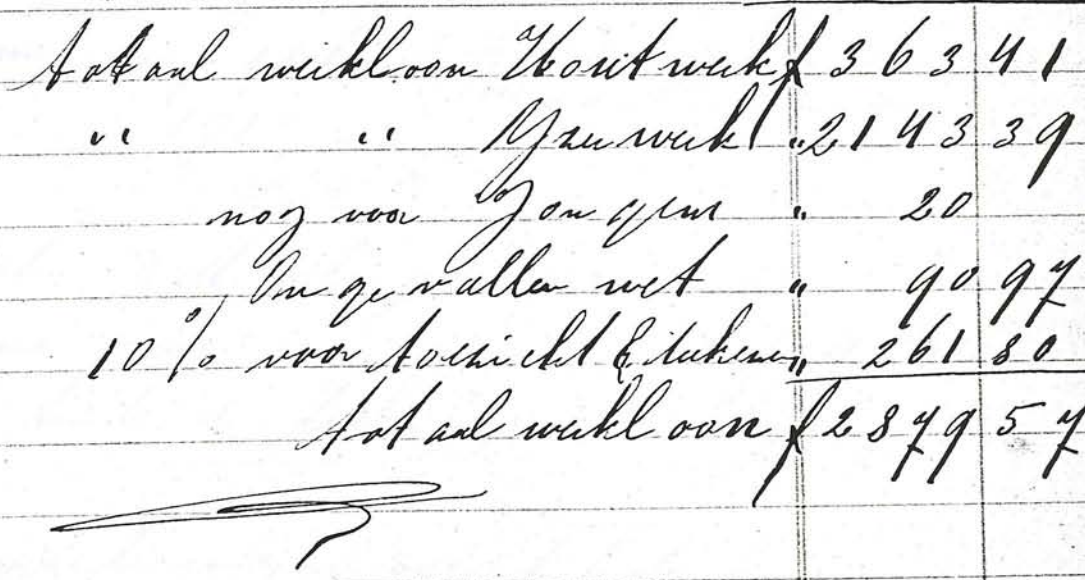 totaal werkloon Houtwerk f 363 41
" " Yzerwerk " 2143 39
nog voor Jongens " 20
Ongevallen wet " 90 97
10 % voor toezicht & teekenen " 261 80
totaal werkloon f 2879 57